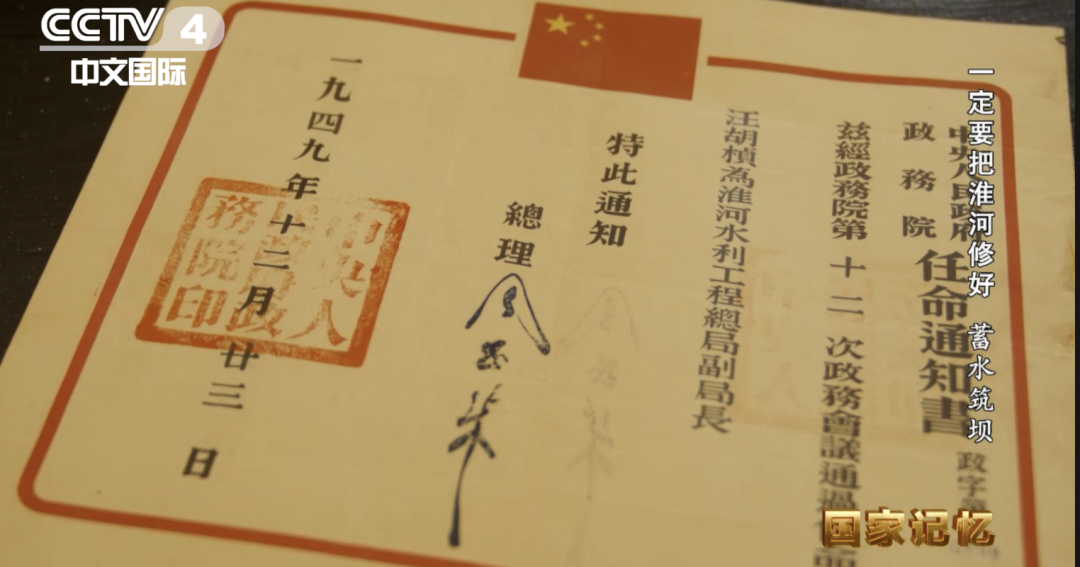 CCTV 4
中文国际
一定要把淮河修好 蓄水筑坝
中央人民政府
政務院
任命通知書
政字
茲經政務院第十二次政務會議通過
汪胡楨為淮河水利工程總局副局長
特此通知
總理
周恩來
一九四九年十二月廿三日
中央人民政府政務院印
国家记忆